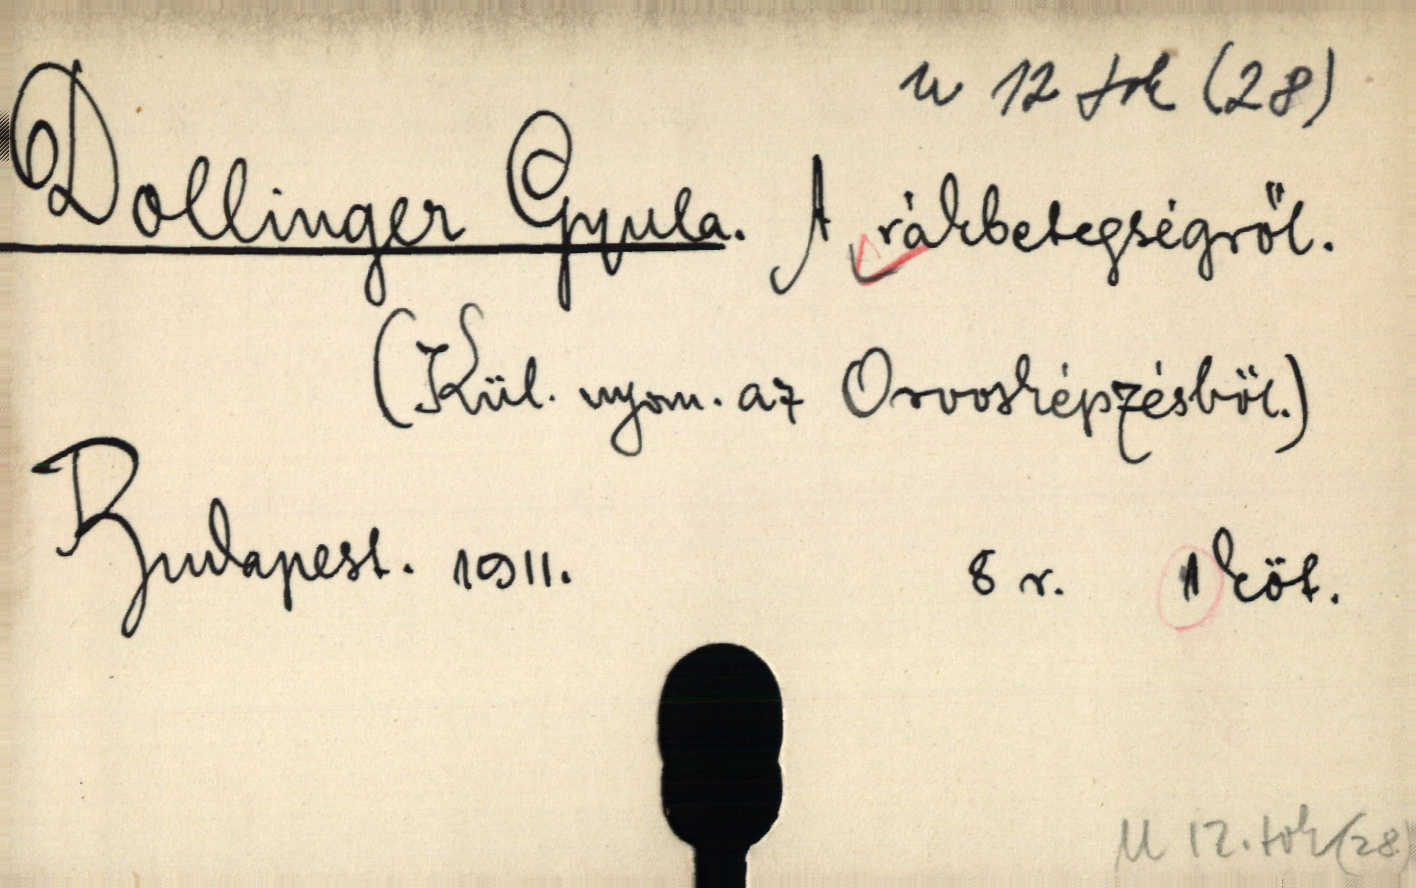 u 12 tok (28)
Dollinger Gyula. A rákbetegségről.
(Kül. nyom. az Orvosképzésből.)
Budapest. 1911. 8 r. 1 köt.
U 12. tok (28)